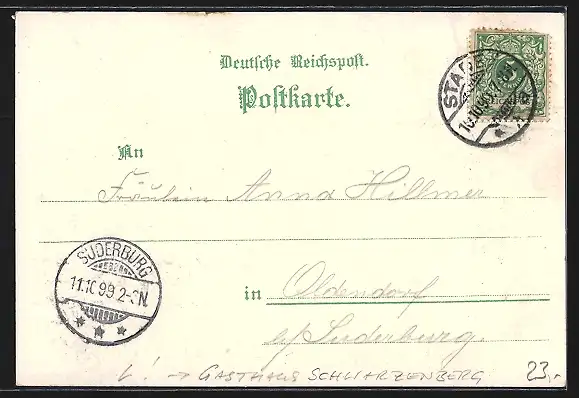 Deutsche Reichspost.
Postkarte.
STADE
10.10.99
An
Fräulein Anna Hillmer
SUDERBURG
11.10.99 2-3N.
in Oldendorf
b/Suderburg.
L! → GASTHAUS SCHWARZENBERG 23,-